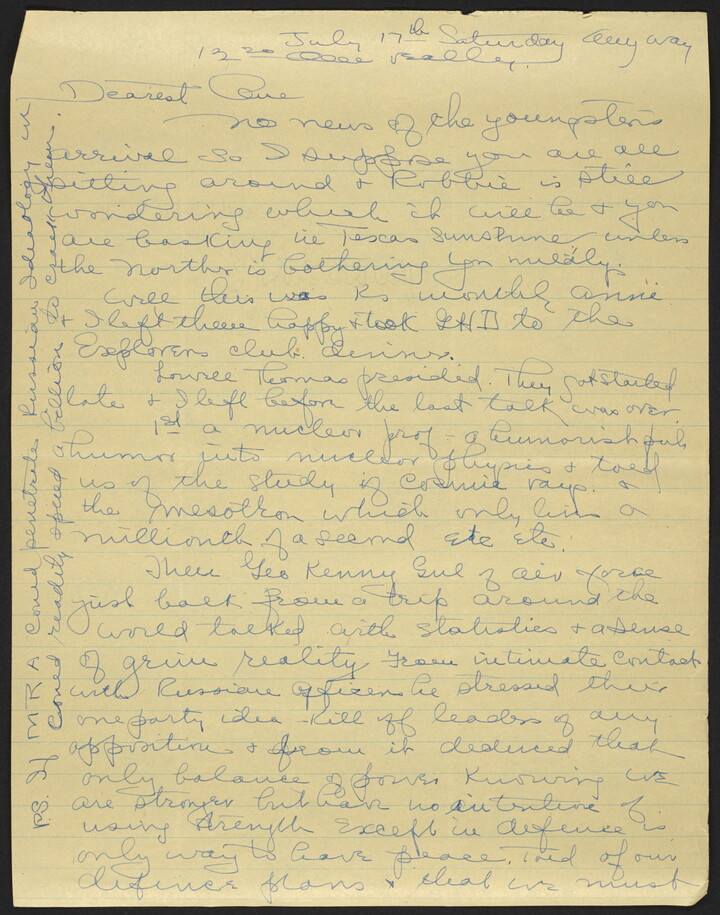 July 17th Saturday any way
Dearest
No news of the youngsters
arrival so I suppose you are all
sitting around & Robbie is still
wondering which it will be & you
are basking in Texas sunshine, unless
the Norther is bothering you mildly.
Well this was Ks monthly
& I left them happy & took to the
Explorers club dinner.
Lowell Thomas presided. They got started
late & I left before the last talk was over.
1st a nuclear prof - a humorist puts
humor into nuclear physics & told
us of the study of Cosmic rays. &
the mesotron which only lives a
millionth of a second etc etc.
Then Geo Kenny Gnl of air force
just back from a trip around the
world talked with statistics & a sense
of grim reality From intimate contact
with Russian officers he stressed their
one party idea - kill off leaders of any
opposition & from it deduced that
only balance of power Knowing we
are stronger but have no intentive of
using strength Except in defence is
only way to have peace. Told of our
defence plans & that we must
P.S. If MRA could penetrate Russian Ideology in
could readily spend a billion to